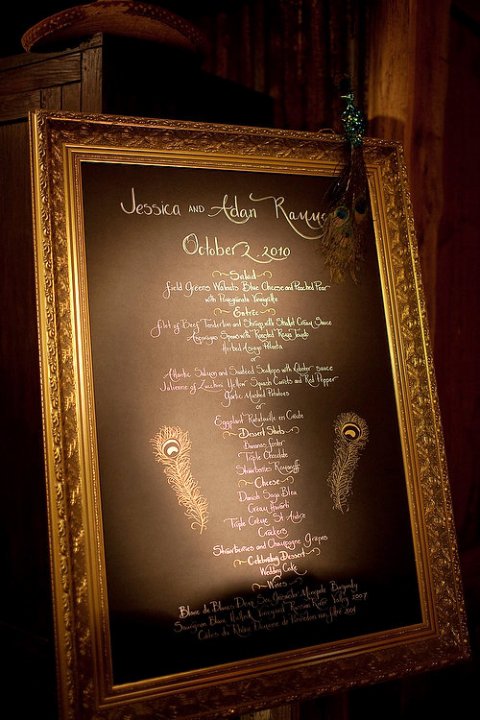 Jessica AND Adan
October 2, 2010
Salad
Field Greens Walnuts Blue Cheese and Poached Pear
with Pomegranate Vinaigrette
Entrée
Filet of Beef Tenderloin and Shrimp with Cream Sauce
Asparagus Spears with Roasted Roma Tomato
Herbed Asiago Polenta
or
Atlantic Salmon and Seabed Scallops with Lobster sauce
Julienne of Zucchini Yellow Squash Carrots and Red Pepper
Garlic Mashed Potatoes
or
Eggplant Ratatouille en Crôute
Dessert Shots
Bananas Foster
Triple Chocolate
Strawberries Romanoff
Cheese
Danish Saga Bleu
Creamy Havarti
Triple Crème St. Andre
Crackers
Strawberries and Champagne Grapes
Celebratory Dessert
Wedding Cake
Wines
Blanc de Blancs Burgundy
Sauvignon Blanc 2007
Cotes du Rhone